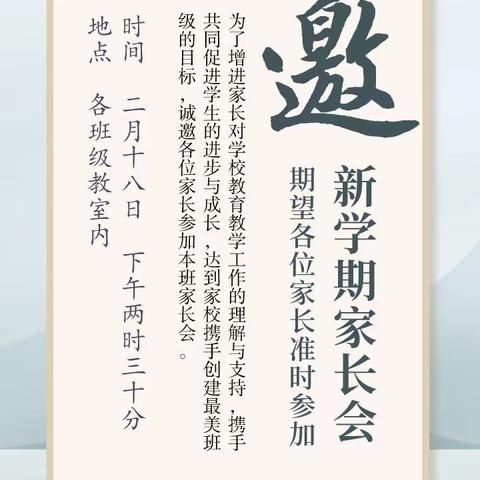 邀
新学期家长会
期望各位家长准时参加
为了增进家长对学校教育教学工作的理解与支持,携手
共同促进学生的进步与成长,达到家校携手创建最美班
级的目标,诚邀各位家长参加本班家长会。
时间 二月十八日 下午两时三十分
地点 各班级教室内